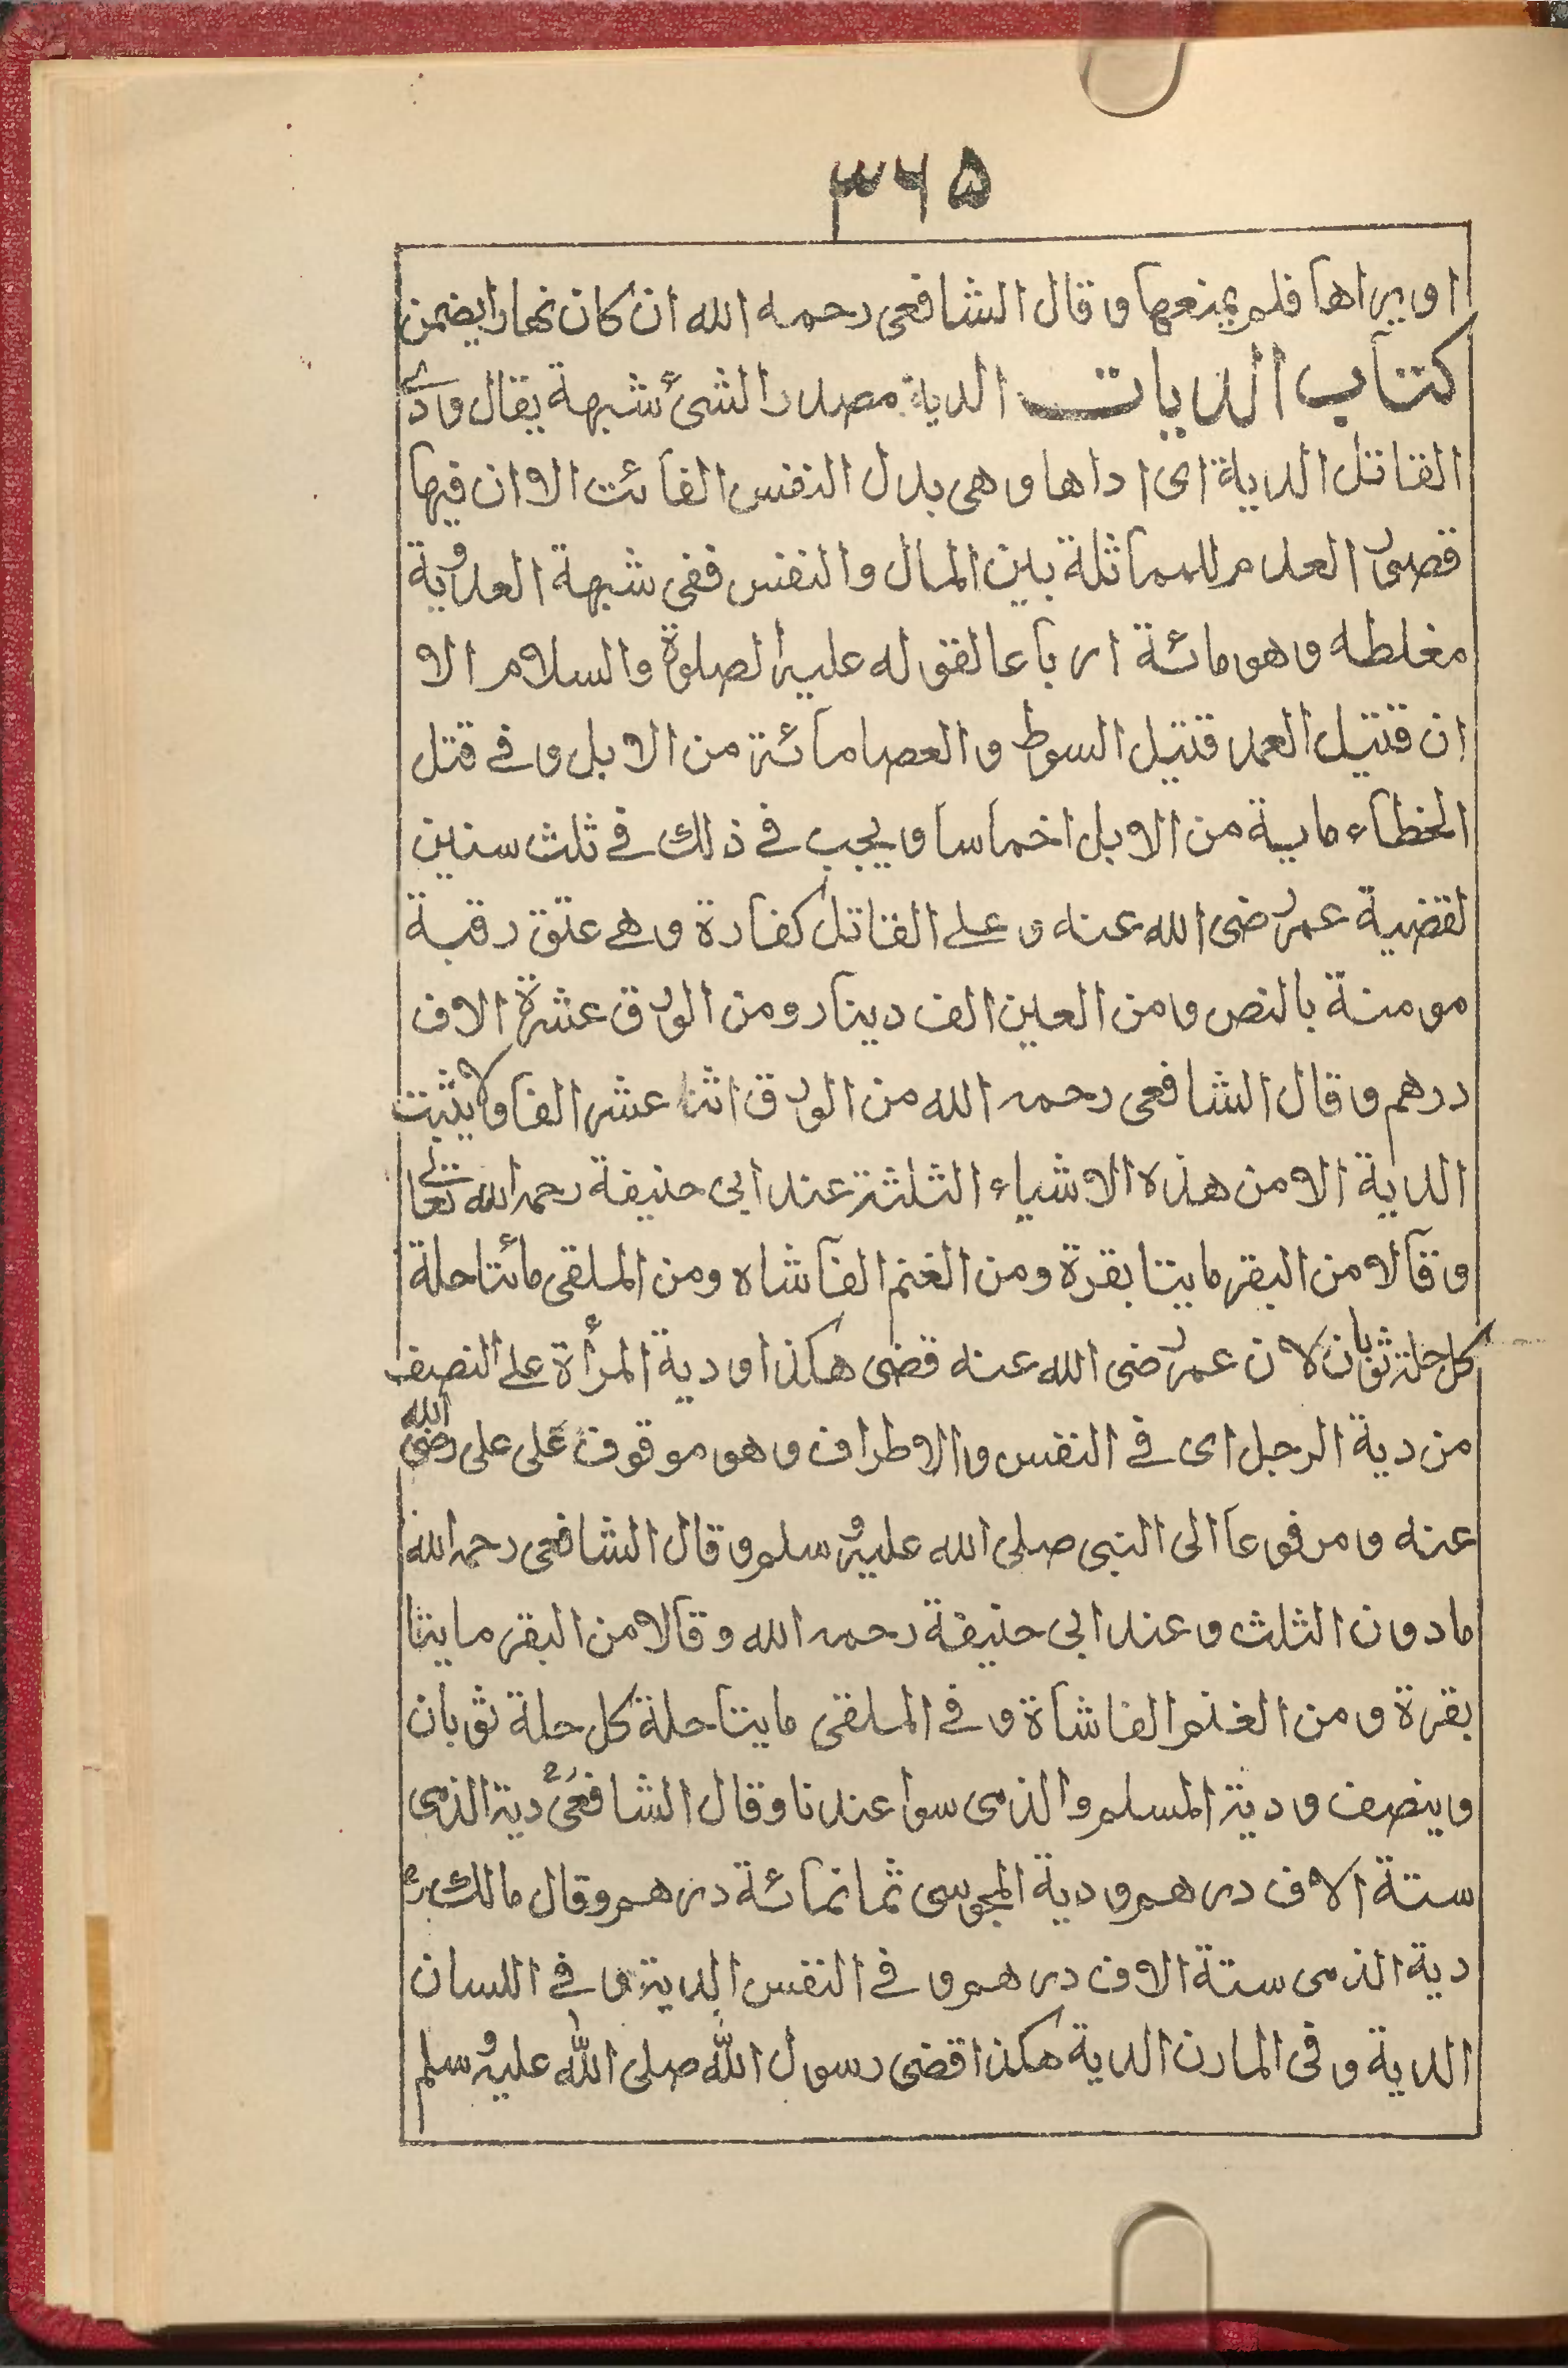 ۳۶۵
او يراها فلم يمنعها و قال الشافعى رحمه الله ان كان نهارا يضمن
كتاب الديات الدية مصدر الشئ شبهة يقال وادى
القاتل الدية اى اداها و هى بدل النفس الفائت الا ان فيها
قصور العدم للمماثلة بين المال والنفس ففى شبهة العمد دية
مغلطه و هو مائة ارباعا لقوله عليه الصلوة والسلام الا
ان قتيل العمد قتيل السوط و العصا مائة من الابل و فے قتل
الخطاء ماية من الابل اخماسا و يجب فے ذلك فے ثلث سنين
لقضية عمر رضى الله عنه و علے القاتل كفارة و هے عتق رقبة
مومنة بالنص و من العين الف دينار و من الورق عشرة الاف
درهم و قال الشافعى رحمه الله من الورق اثنا عشر الفا ولا يثبت
الدية الا من هذه الاشياء الثلثة عند ابى حنيفة رحمه الله تعالے
و قالا من البقر مايتا بقرة و من الغنم الفا شاه و من الملقى مائتا حلة
كل حلة ثوبان لان عمر رضى الله عنه قضى هكذا و دية المرأة علے النصف
من دية الرجل اى فے النفس و الاطراف و هو موقوف على على رضى الله
عنه و مرفوعا الى النبى صلى الله عليه و سلم و قال الشافعى رحمه الله
ما دون الثلث و عند ابى حنيفة رحمه الله و قالا من البقر مايتا
بقرة و من الغنم الفا شاة و فے الملقى مايتا حلة كل حلة ثوبان
و ينصف و دية المسلم و الذمى سوا عندنا و قال الشافعىؒ دية الذمى
ستة الاف درهم و دية المجوسى ثمانمائة درهم و قال مالكؒ
دية الذمى ستة الاف درهم و فے النفس الدية و فے اللسان
الدية و فى المارن الدية هكذا قضى رسول الله صلى الله عليه و سلم